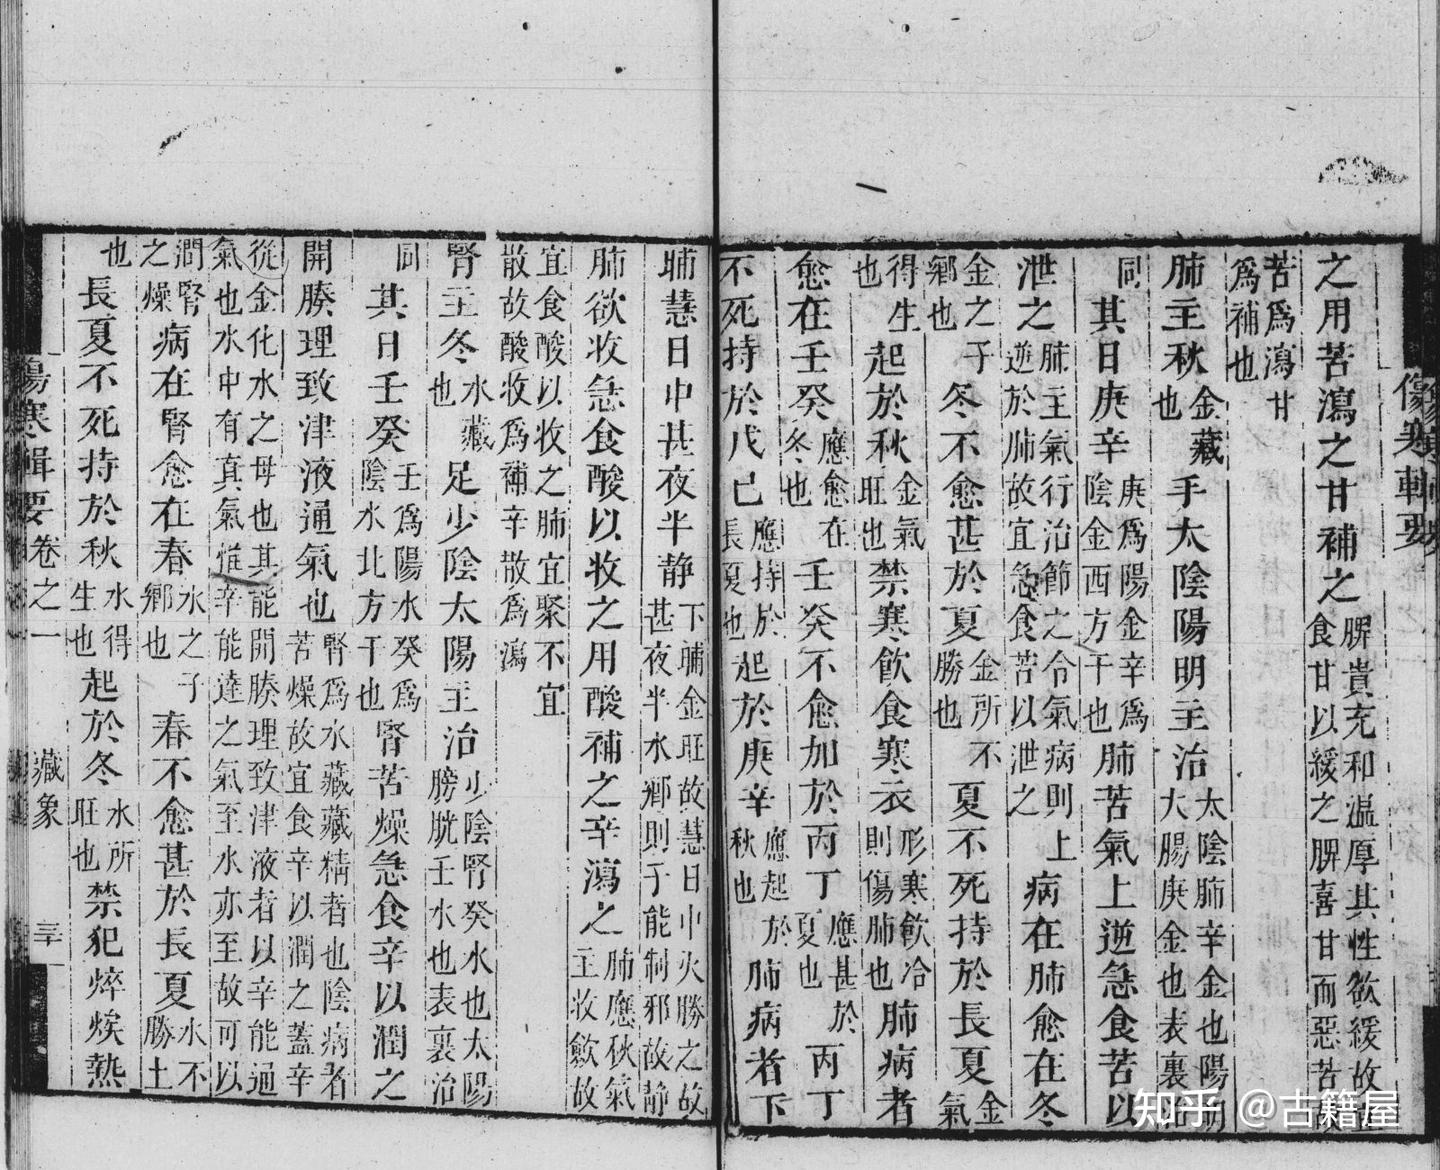 之用苦瀉之甘補之脾貴充和溫厚其性欲緩故宜食甘以緩之脾喜甘而惡苦故
苦爲瀉甘爲補也
肺主秋金藏也手太陰陽明主治太陰肺辛金也陽明大腸庚金也表裏治
同其日庚辛庚爲陽金辛爲陰金西方干也肺苦氣上逆急食苦以
泄之肺主氣行治節之令氣病則上逆於肺故宜急食苦以泄之病在肺愈在冬
金之子鄉也冬不愈甚於夏金所不勝也夏不死持於長夏金氣
得生也起於秋金氣旺也禁寒飲食寒衣形寒飲冷則傷肺也肺病者
愈在壬癸應愈在冬也壬癸不愈加於丙丁應甚於夏也丙丁
不死持於戊己應持於長夏也起於庚辛應起於秋也肺病者下
晡慧日中甚夜半靜下晡金旺故慧日中火勝之故甚夜半水鄉則子能制邪故靜
肺欲收急食酸以收之用酸補之辛瀉之肺應秋氣主收斂故
宜食酸以收之肺宜聚不宜散故酸收爲補辛散爲瀉
腎主冬水藏也足少陰太陽主治少陰腎癸水也太陽膀胱壬水也表裏治
同其日壬癸壬爲陽水癸爲陰水北方干也腎苦燥急食辛以潤之
開腠理致津液通氣也腎爲水藏藏精者也陰病者苦燥故宜食辛以潤之蓋辛
從金化水之母也其能開腠理致津液者以辛能通氣也水中有真氣惟辛能達之氣至水亦至故可以
潤腎之燥病在腎愈在春水之子鄉也春不愈甚於長夏水不勝土
也長夏不死持於秋水得生也起於冬水所旺也禁犯焠㶼熱
傷寒輯要卷之一
藏象